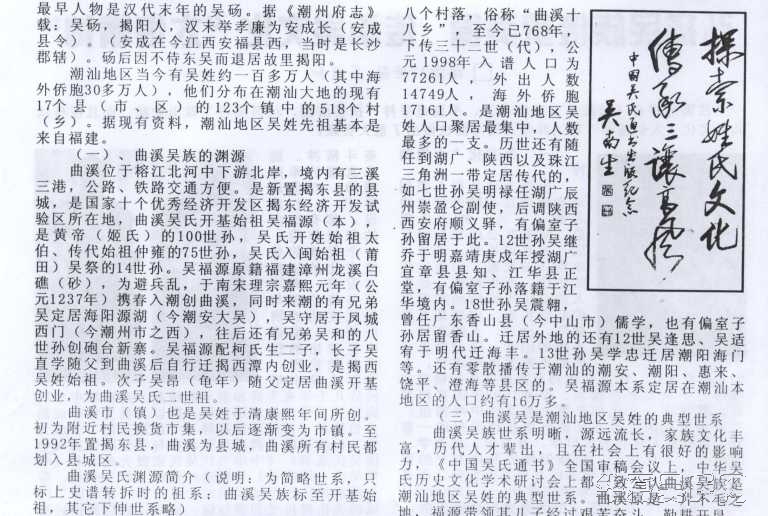 最早人物是汉代末年的吴砀。据《潮州府志》
载：吴砀，揭阳人，汉末举孝廉为安成长（安成
县令）。（安成在今江西安福县西，当时是长沙
郡辖）。砀后因不侍东吴而退居故里揭阳。
潮汕地区当今有吴姓约一百多万人（其中海
外侨胞30多万人），他们分布在潮汕大地的现有
17个县（市、区）的123个镇中的518个村
（乡）。据现有资料，潮汕地区吴姓先祖基本是
来自福建。
（一）、曲溪吴族的渊源
曲溪位于榕江北河中下游北岸，境内有三溪
三港，公路、铁路交通方便。是新置揭东县的县
城，是国家十个优秀经济开发区揭东经济开发试
验区所在地，曲溪吴氏开基始祖吴福源（本），
是黄帝（姬氏）的100世孙，吴氏开姓始祖太
伯、传代始祖仲雍的75世孙，吴氏入闽始祖（莆
田）吴祭的14世孙。吴福源原籍福建漳州龙溪白
礁（砂），为避兵乱，于南宋理宗嘉熙元年（公
元1237年）携眷入潮创曲溪，同时来潮的有兄弟
吴定居海阳源湖（今潮安大吴），吴守居于凤城
西门（今潮州市之西），往后还有兄弟吴和的八
世孙创砲台新寨。吴福源配柯氏生二子，长子吴
直学随父到曲溪后自行迁揭西潭内创业，是揭西
吴姓始祖。次子吴昂（龟年）随父定居曲溪开基
创业，为曲溪吴氏二世祖。
曲溪市（镇）也是吴姓于清康熙年间所创。
初为附近村民换货市集，以后逐渐变为市镇。至
1992年置揭东县，曲溪为县城，曲溪所有村民都
划入县城区。
曲溪吴氏渊源简介（说明：为简略世系，只
标上史谱转拆时的祖系；曲溪吴族标至开基始
祖，其它下伸世系略）
八个村落，俗称“曲溪十
八乡”，至今已768年，
下传三十二世（代），公
元1998年入谱人口为
77261人，外出人数
14749人，海外侨胞
17161人。是潮汕地区吴
姓人口聚居最集中，人数
最多的一支。历世还有随
任到湖广、陕西以及珠江
三角洲一带定居传代的，
如七世孙吴明禄任湖广辰
州崇盈仑副使，后调陕西
西安府顺义驿，有偏室子
孙留居于此。12世孙吴继
乔于明嘉靖庚戌年授湖广
宜章县县知、江华县正
堂，有偏室子孙落籍于江
华境内。18世孙吴震翱，
曾任广东香山县（今中山市）儒学，也有偏室子
孙居留香山。迁居外地的还有12世吴逢思、吴适
宥于明代迁海丰。13世孙吴学忠迁居潮阳海门
等。还有零散播传于潮汕的潮安、潮阳、惠来、
饶平、澄海等县区的。吴福源本系定居在潮汕本
地区的人口约有16万多。
（三）曲溪吴是潮汕地区吴姓的典型世系
曲溪吴族世系明晰，源远流长，家族文化丰
富，历代人才辈出，且在社会上有很好的影响
力，《中国吴氏通书》全国审稿会议上，中华吴
氏历史文化学术研讨会上都一致公认曲溪吴族是
潮汕地区吴姓的典型世系。曲溪原是一片不毛之
地，福源带领其儿子经过艰苦奋斗，勤耕开是
探索姓氏文化
传承三让高风
中国吴氏通书出版纪念
吴南生